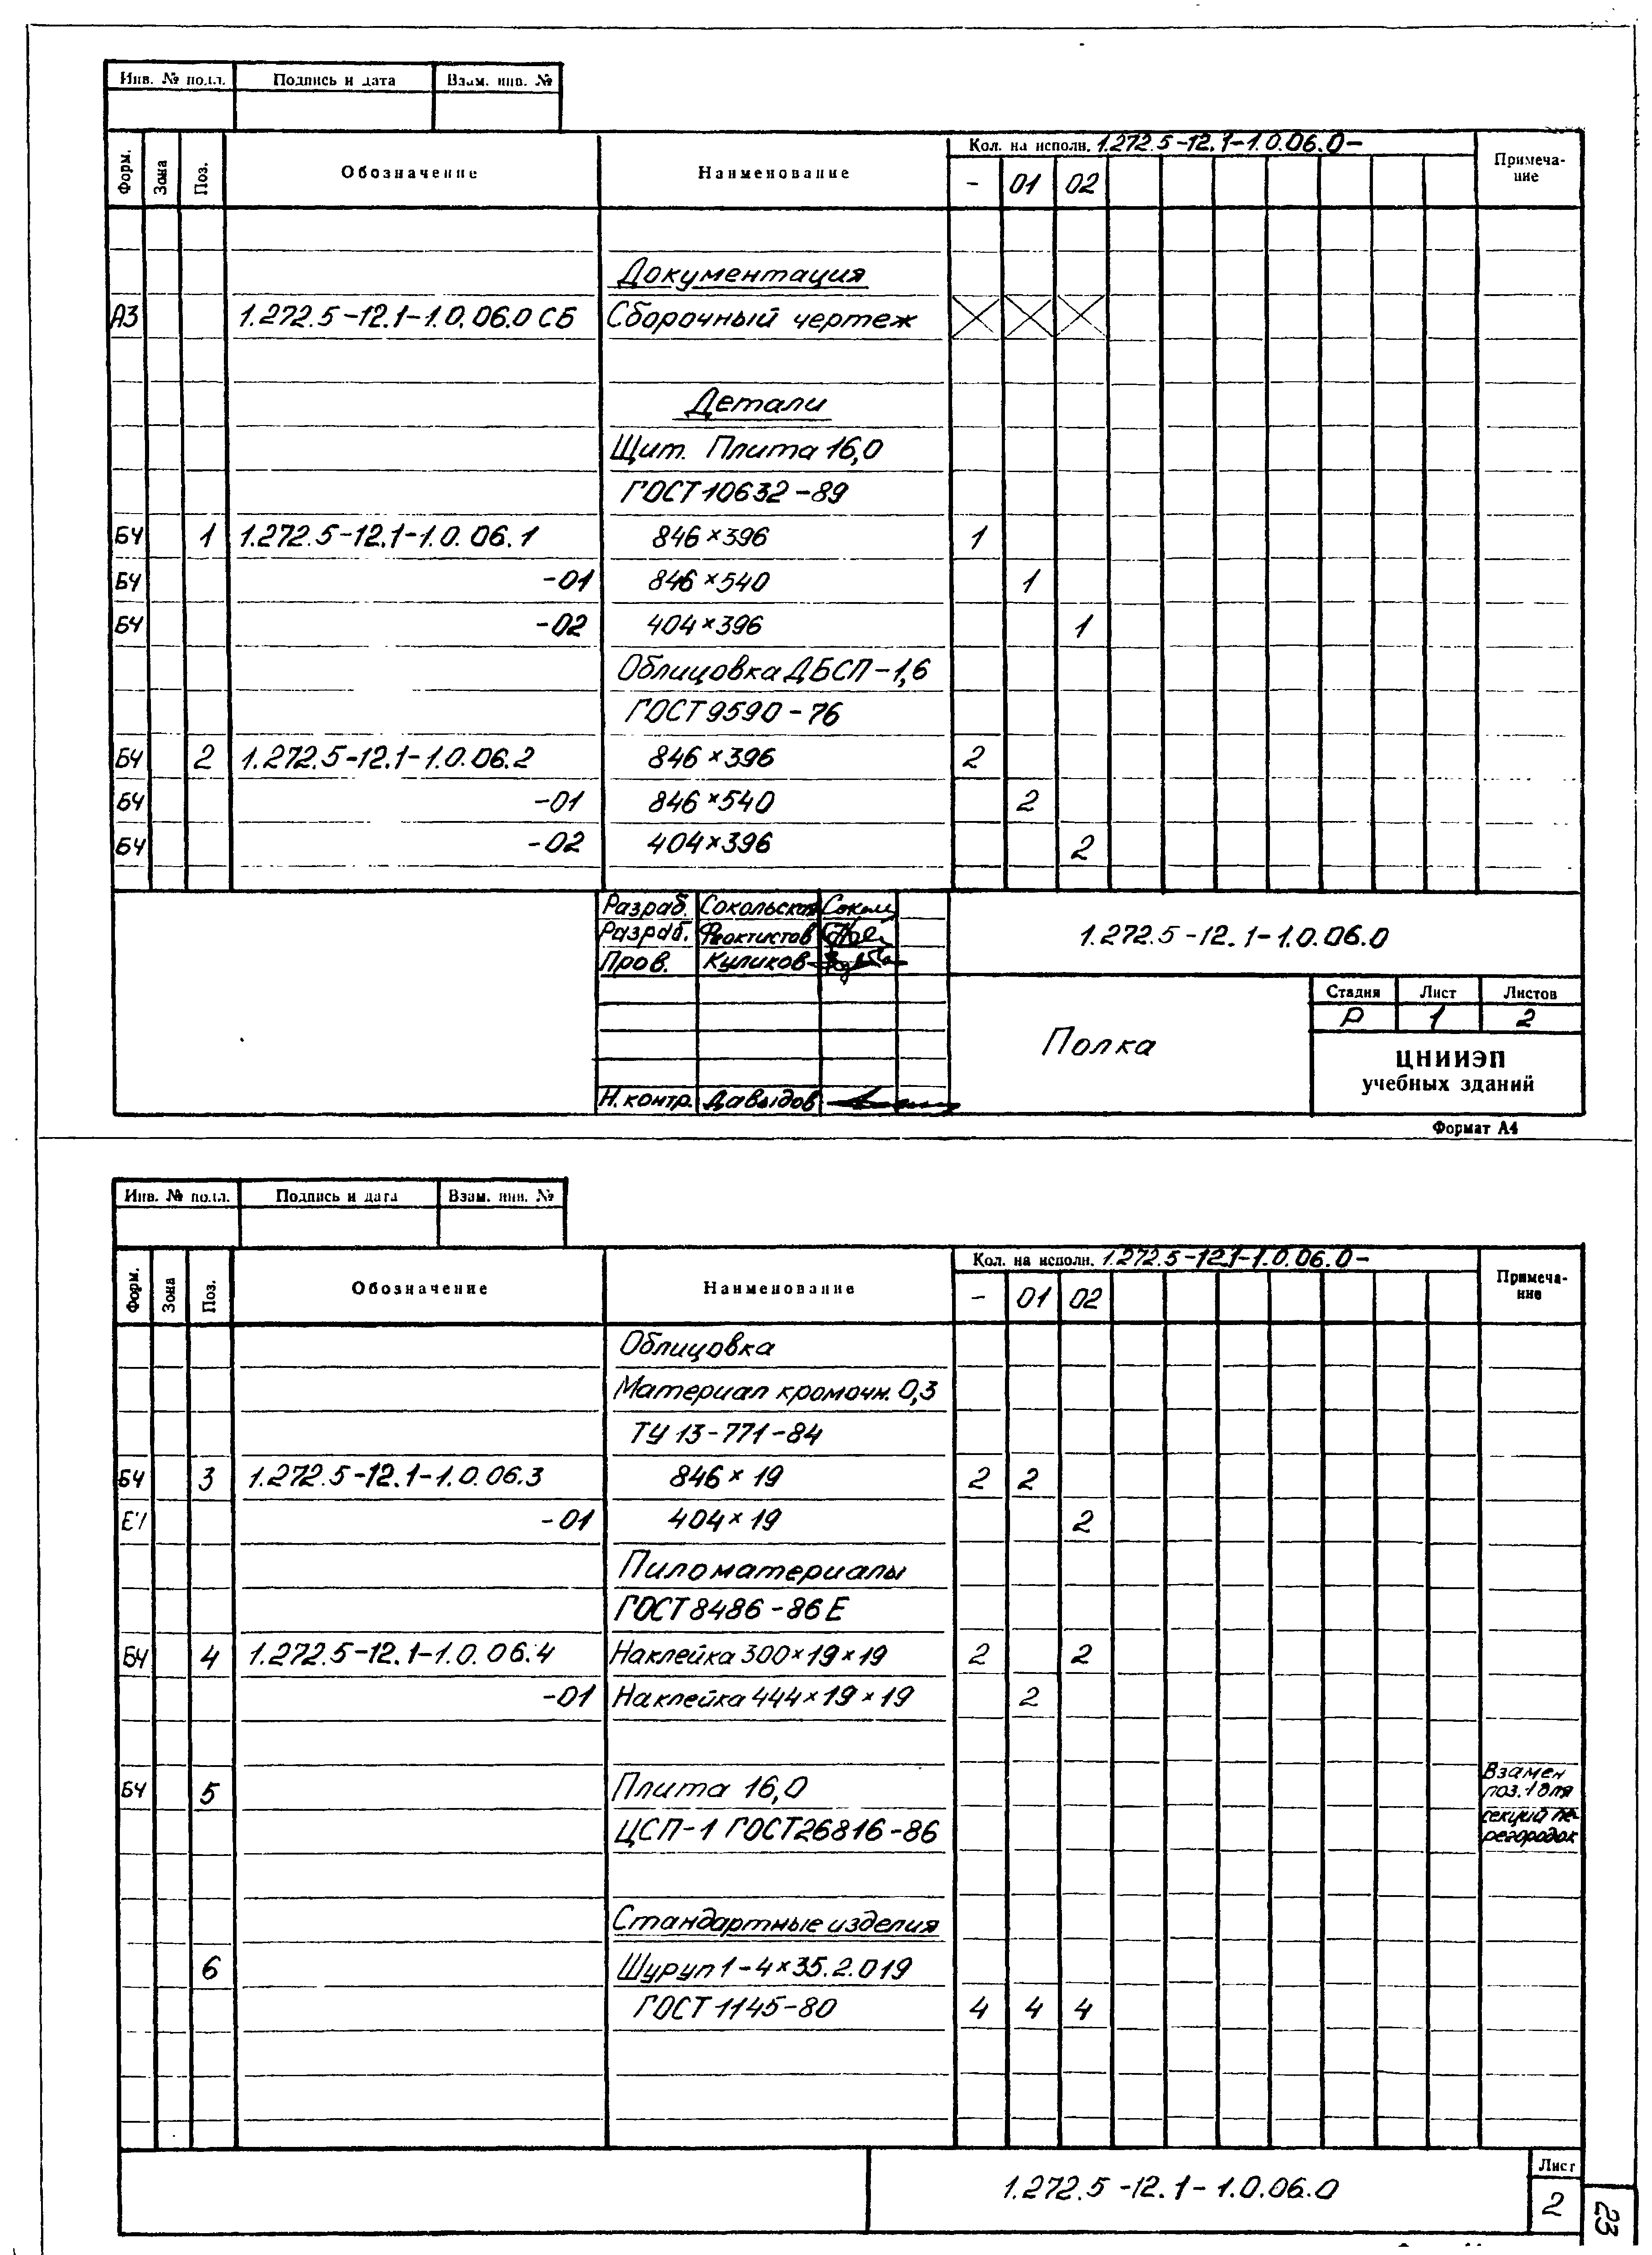 Инв. № подл. Подпись и дата Взам. инв. №
Форм. Зона Поз. Обозначение Наименование Кол. на исполн. 1.272.5-12.1-1.0.06.0- Примеча-
ние
- 01 02
Документация
А3 1.272.5-12.1-1.0.06.0 СБ Сборочный чертеж
Детали
Щит. Плита 16,0
ГОСТ 10632-89
БЧ 1 1.272.5-12.1-1.0.06.1 846×396 1
БЧ -01 846×540 1
БЧ -02 404×396 1
Облицовка ДБСП-1,6
ГОСТ 9590-76
БЧ 2 1.272.5-12.1-1.0.06.2 846×396 2
БЧ -01 846×540 2
БЧ -02 404×396 2
Разраб. Сокольская
Разраб. Феоктистов
Пров. Куликов
Н. контр. Давыдов
1.272.5-12.1-1.0.06.0
Полка
Стадия Лист Листов
Р 1 2
ЦНИИЭП
учебных зданий
Формат А4
Инв. № подл. Подпись и дата Взам. инв. №
Форм. Зона Поз. Обозначение Наименование Кол. на исполн. 1.272.5-12.1-1.0.06.0- Примеча-
ние
- 01 02
Облицовка
Материал кромочн. 0,3
ТУ 13-771-84
БЧ 3 1.272.5-12.1-1.0.06.3 846×19 2 2
БЧ -01 404×19 2
Пиломатериалы
ГОСТ 8486-86Е
БЧ 4 1.272.5-12.1-1.0.06.4 Наклейка 300×19×19 2 2
-01 Наклейка 444×19×19 2
БЧ 5 Плита 16,0 Взамен
поз. 1 для
ЦСП-1 ГОСТ 26816-86 секций пе-
регородок
Стандартные изделия
6 Шуруп 1-4×35.2.019
ГОСТ 1145-80 4 4 4
1.272.5-12.1-1.0.06.0
Лист
2
23